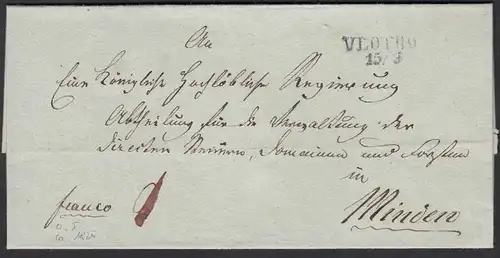 An
VLOTHO
15/3
Eine Königliche Hochlöbliche Regierung
Abtheilung für die Verwaltung der
directen Steuern, Domainen und Forsten
in
franco
Minden